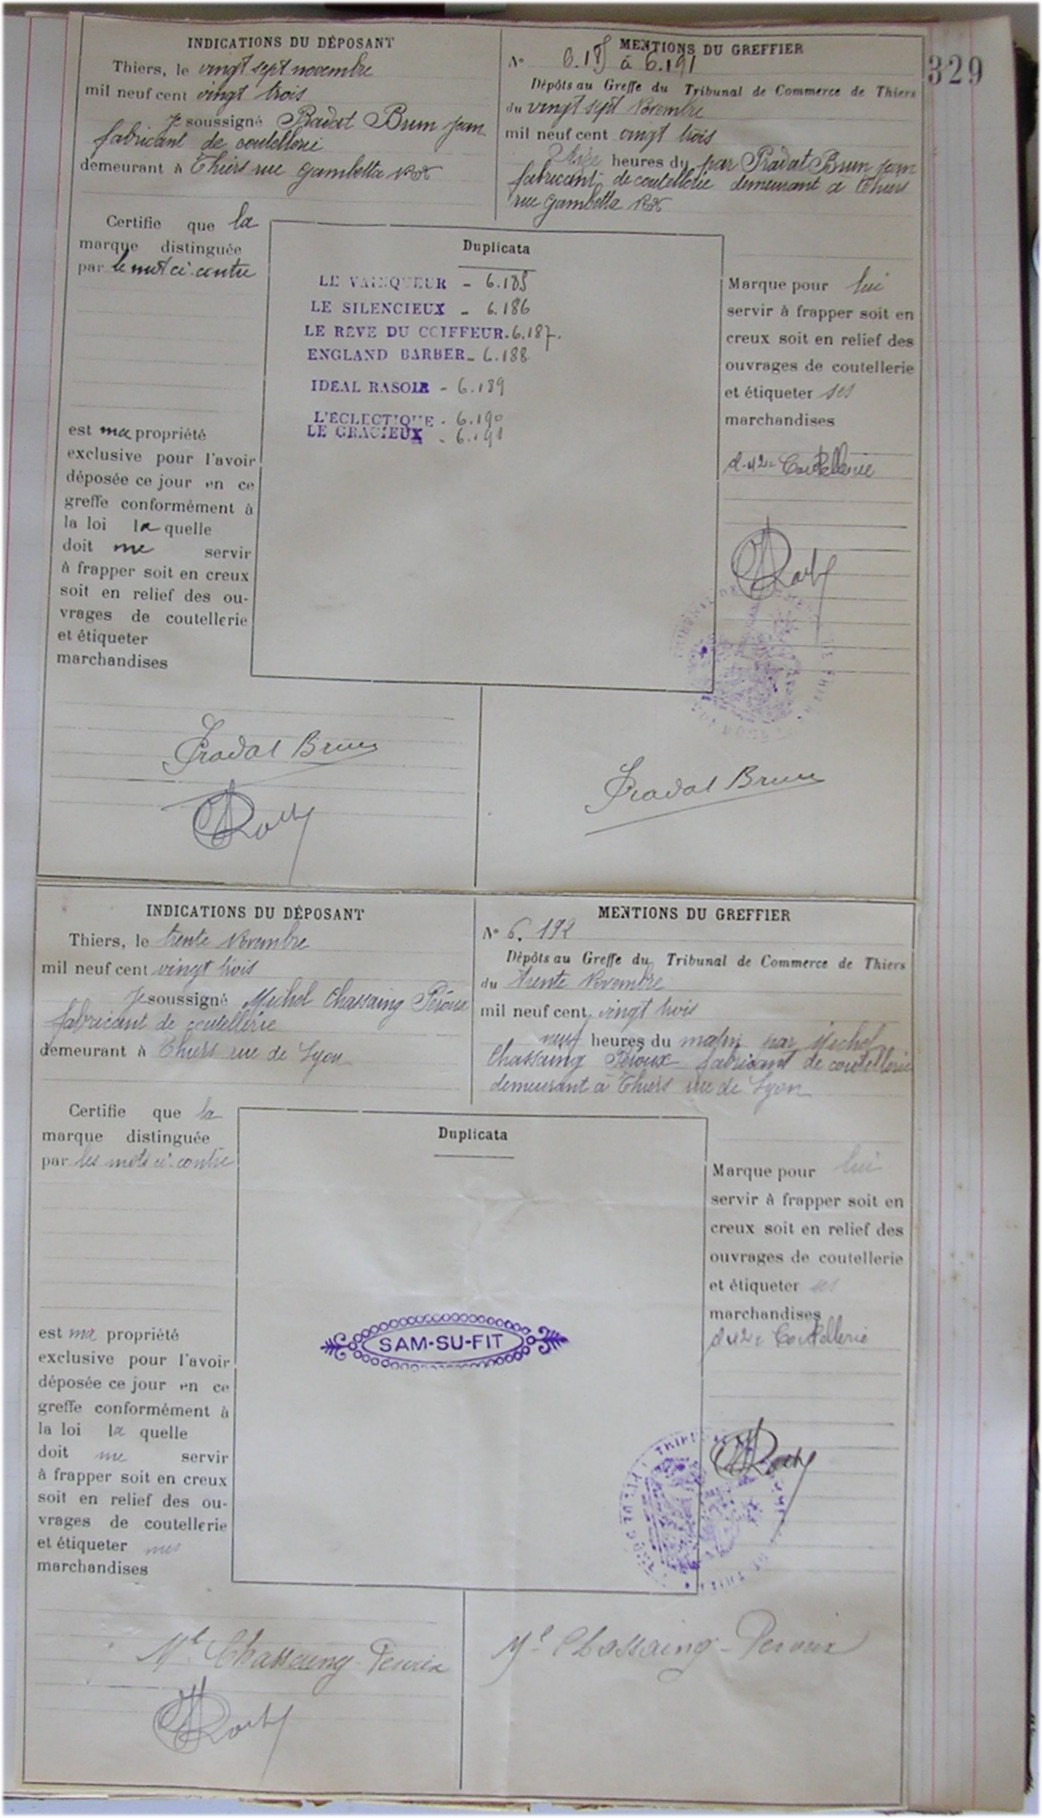 329
INDICATIONS DU DÉPOSANT
Thiers, le vingt sept novembre
mil neuf cent vingt trois
Je soussigné Pradat Brun Jean
fabricant de coutellerie
demeurant à Thiers rue Gambetta
MENTIONS DU GREFFIER
N° 6.185 à 6.191
Dépôts au Greffe du Tribunal de Commerce de Thiers
du vingt sept Novembre
mil neuf cent vingt trois
heures du par Pradat Brun Jean
fabricant de coutellerie demeurant à Thiers
rue Gambetta
Certifie que la
marque distinguée
par le mot ci-contre
est ma propriété
exclusive pour l'avoir
déposée ce jour en ce
greffe conformément à
la loi laquelle
doit me servir
à frapper soit en creux
soit en relief des ou-
vrages de coutellerie
et étiqueter
marchandises
Duplicata
LE VAINQUEUR - 6.185
LE SILENCIEUX - 6.186
LE REVE DU COIFFEUR - 6.187.
ENGLAND BARBER - 6.188
IDEAL RASOIR - 6.189
L'ÉCLECTIQUE - 6.190
LE GRACIEUX - 6.191
Marque pour lui
servir à frapper soit en
creux soit en relief des
ouvrages de coutellerie
et étiqueter ses
marchandises
de Coutellerie
Pradat Brun
Pradat Brun
INDICATIONS DU DÉPOSANT
Thiers, le trente Novembre
mil neuf cent vingt trois
Je soussigné Michel Chassaing Péroux
fabricant de coutellerie
demeurant à Thiers rue de Lyon
MENTIONS DU GREFFIER
N° 6.192
Dépôts au Greffe du Tribunal de Commerce de Thiers
du trente Novembre
mil neuf cent vingt trois
neuf heures du matin par Michel
Chassaing Péroux fabricant de coutellerie
demeurant à Thiers rue de Lyon
Certifie que la
marque distinguée
par les mots ci-contre
est ma propriété
exclusive pour l'avoir
déposée ce jour en ce
greffe conformément à
la loi la quelle
doit me servir
à frapper soit en creux
soit en relief des ou-
vrages de coutellerie
et étiqueter mes
marchandises
Duplicata
SAM-SU-FIT
Marque pour lui
servir à frapper soit en
creux soit en relief des
ouvrages de coutellerie
et étiqueter ses
marchandises
de Coutellerie
Ml Chassaing-Peroux
Ml Chassaing-Peroux